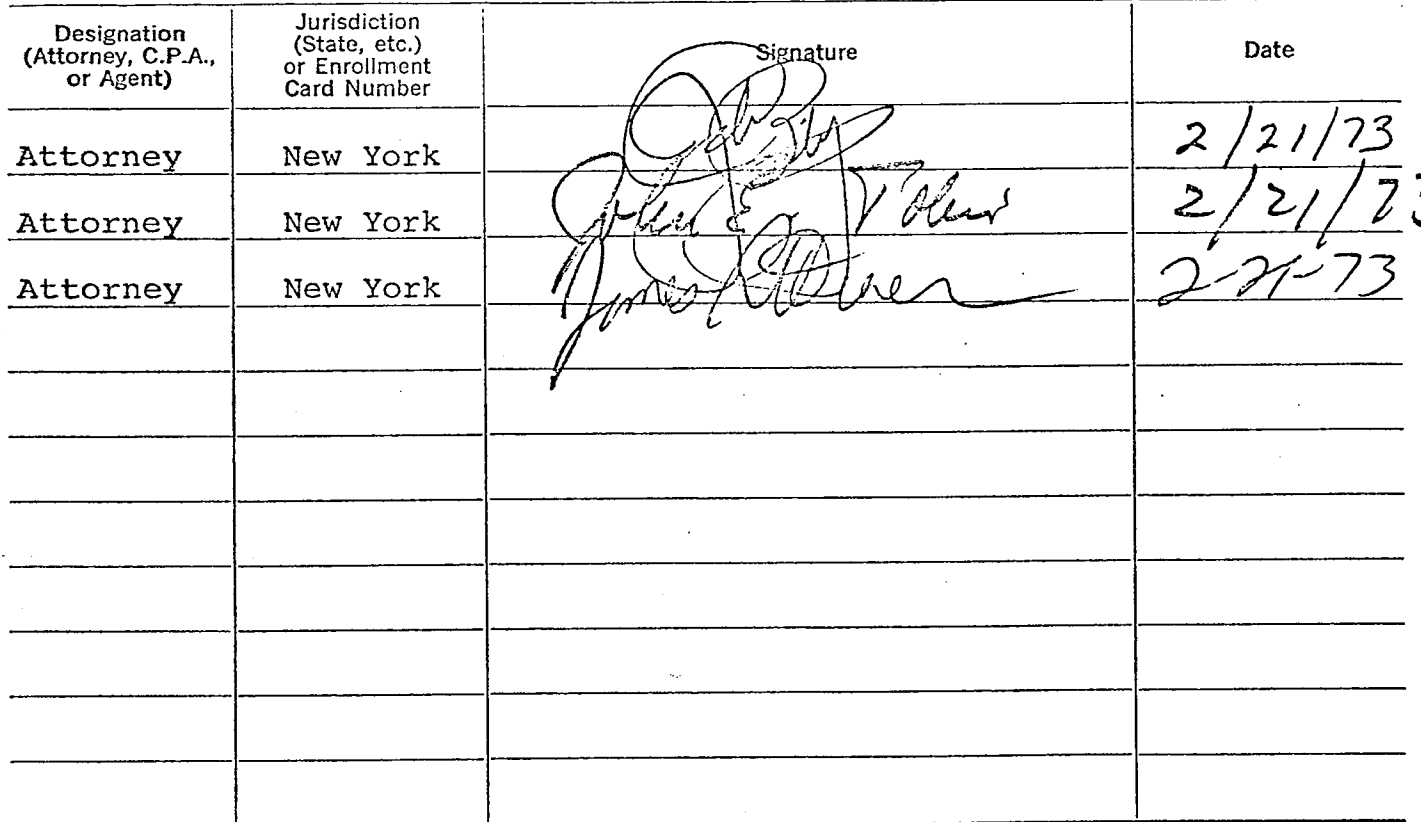 Designation
(Attorney, C.P.A.,
or Agent)
Jurisdiction
(State, etc.)
or Enrollment
Card Number
Signature
Date
Attorney New York 2/21/73
Attorney New York John E Tobin 2/21/73
Attorney New York James 2-21-73